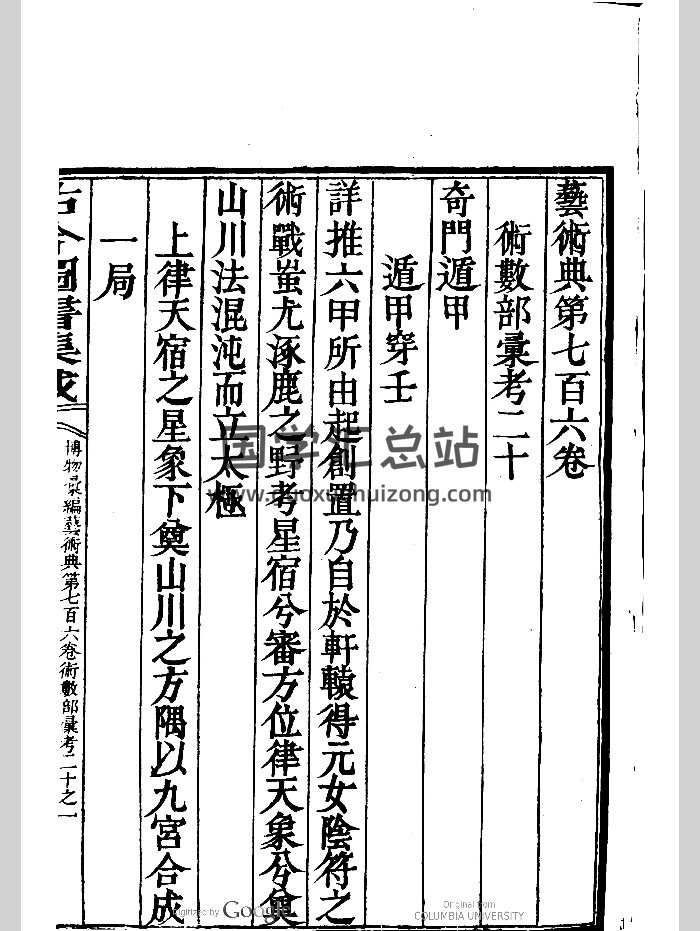 藝術典第七百六卷
術數部彙考二十
奇門遁甲
遁甲穿壬
詳推六甲所由起創置乃自於軒轅得元女陰符之
術戰蚩尤涿鹿之野考星宿兮審方位律天象兮奠
山川法混沌而立太極
上律天宿之星象下奠山川之方隅以九宮合成
一局
古今圖書集成
博物彙編藝術典第七百六卷術數部彙考二十之一
国学汇总站
www.guoxuehuizong.com
Digitized by Google
Original from
COLUMBIA UNIVERSITY